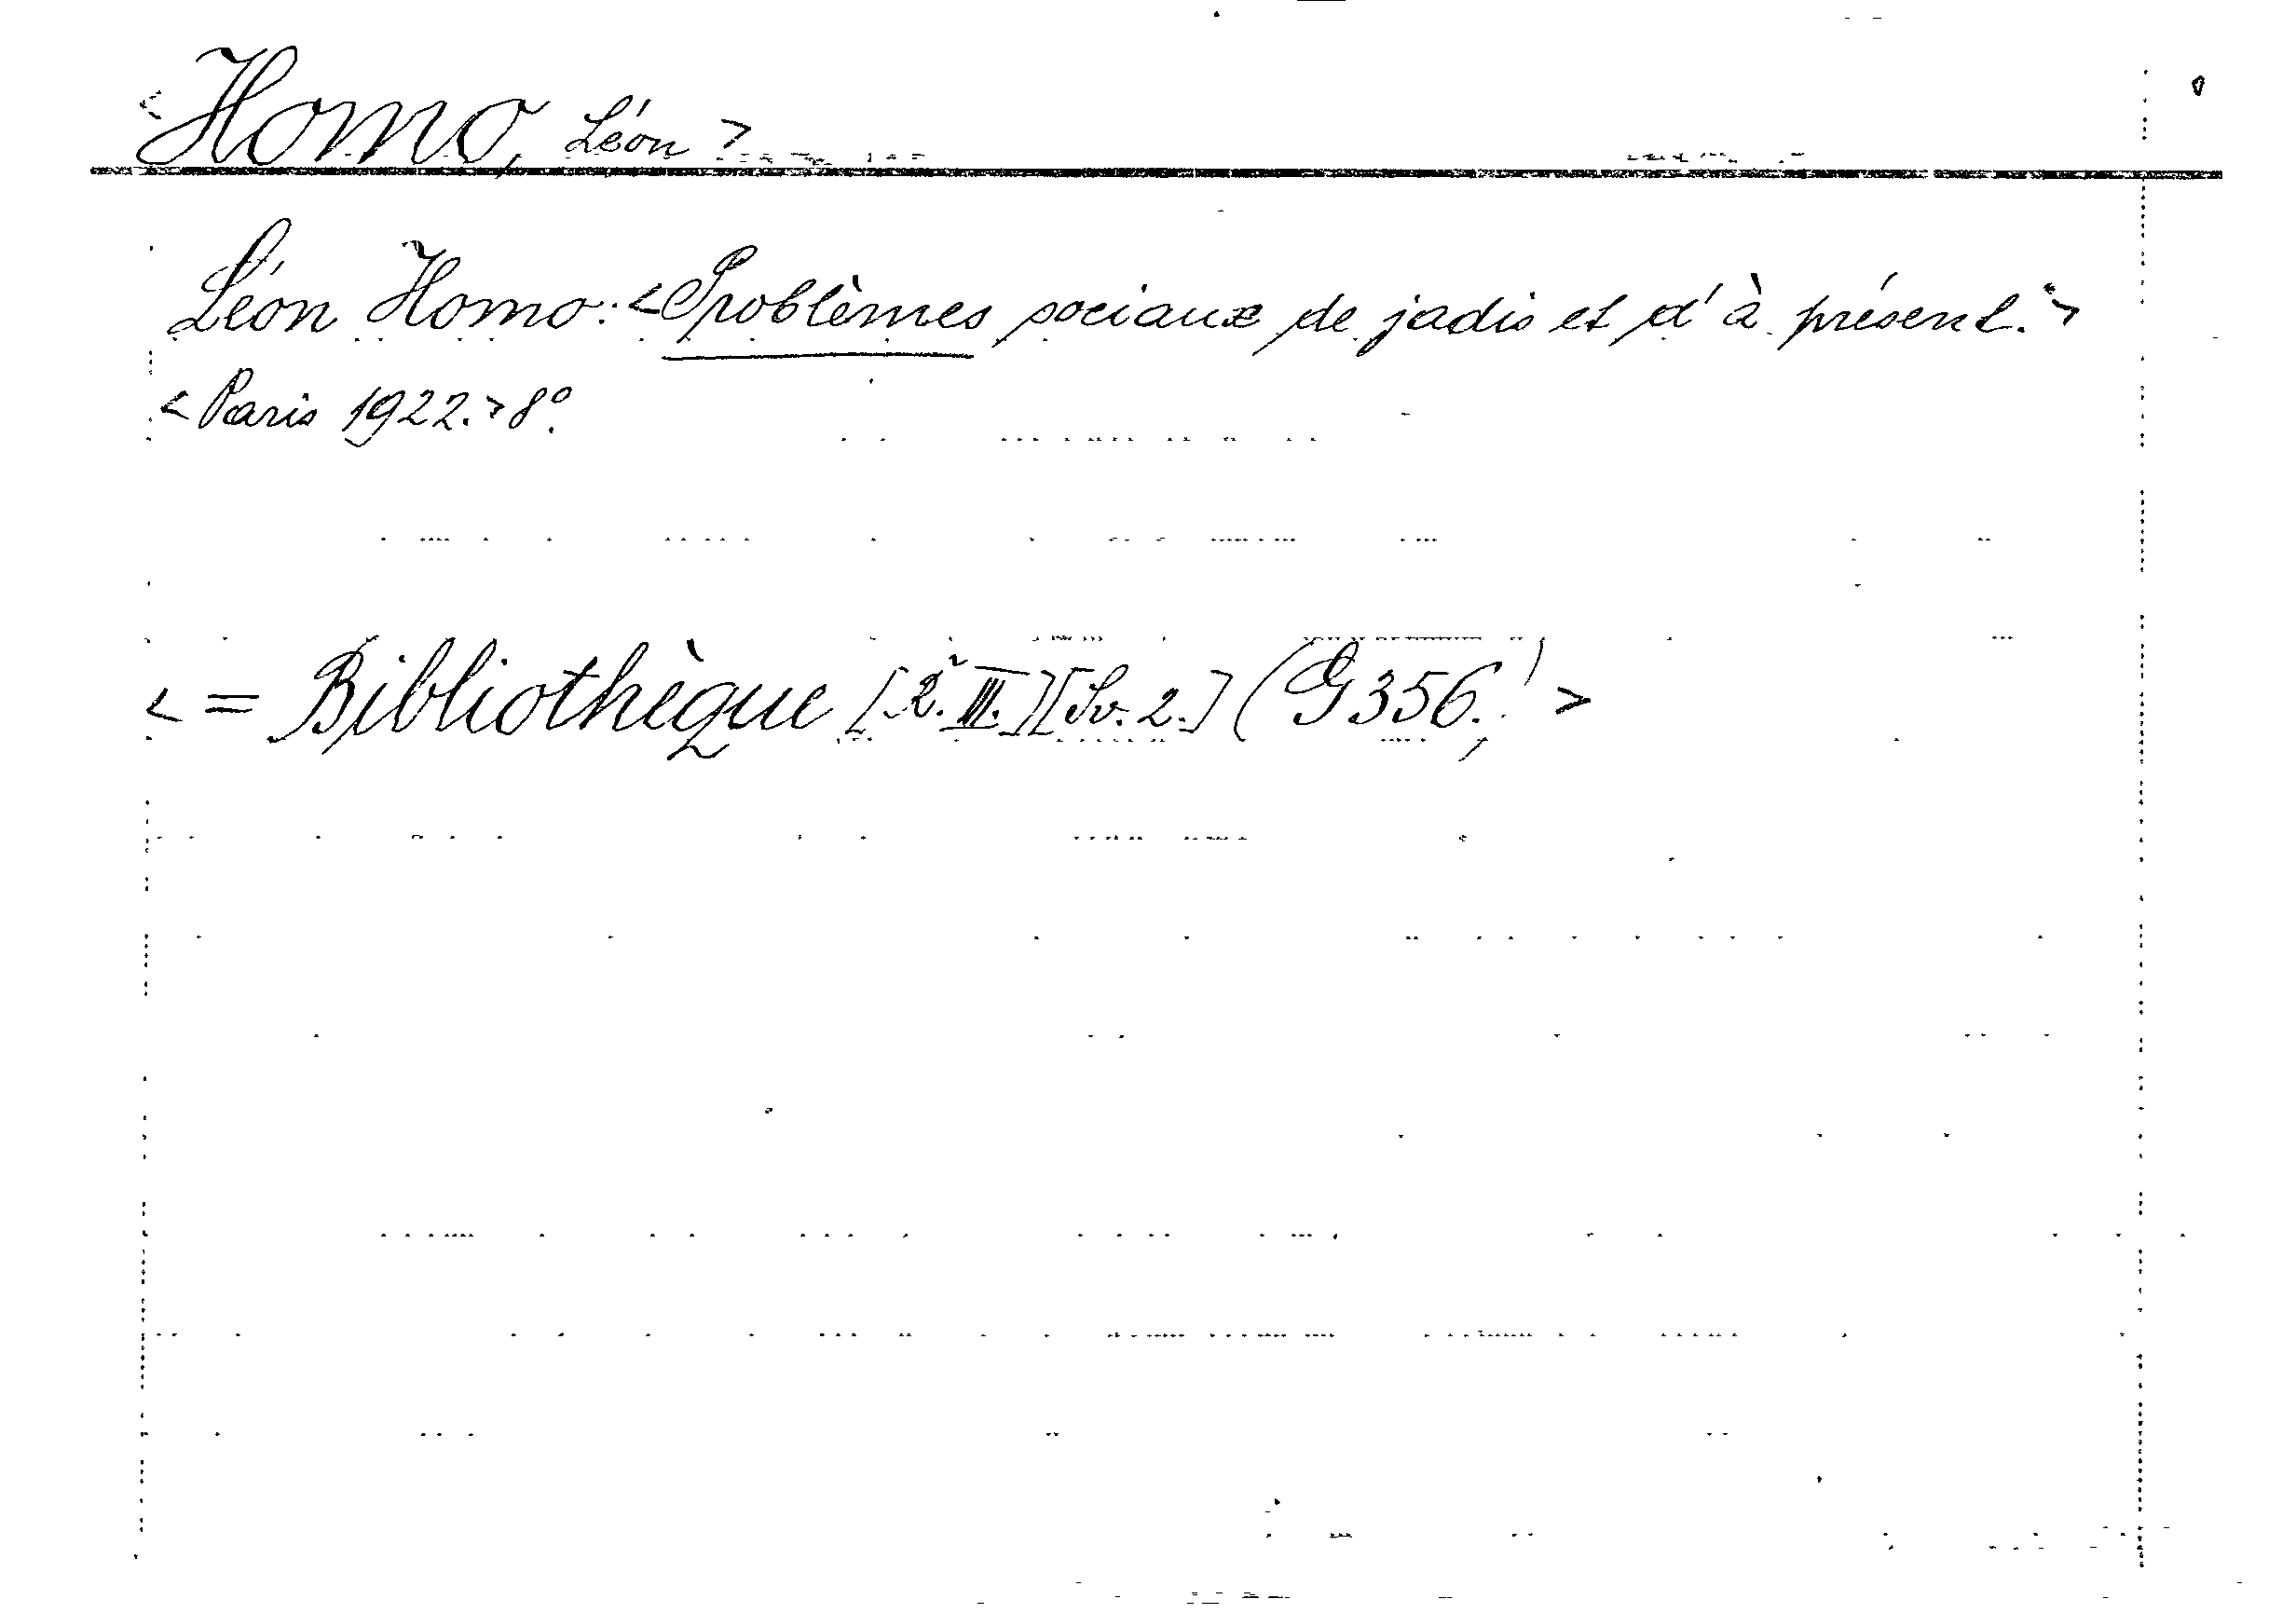 <Homo, Léon>
Léon Homo: <Problèmes sociaux de jadis et d'à présent.>
<Paris 1922.> 8°.
<= Bibliothèque [2. III.] [Sv. 2.] (G 356.)>